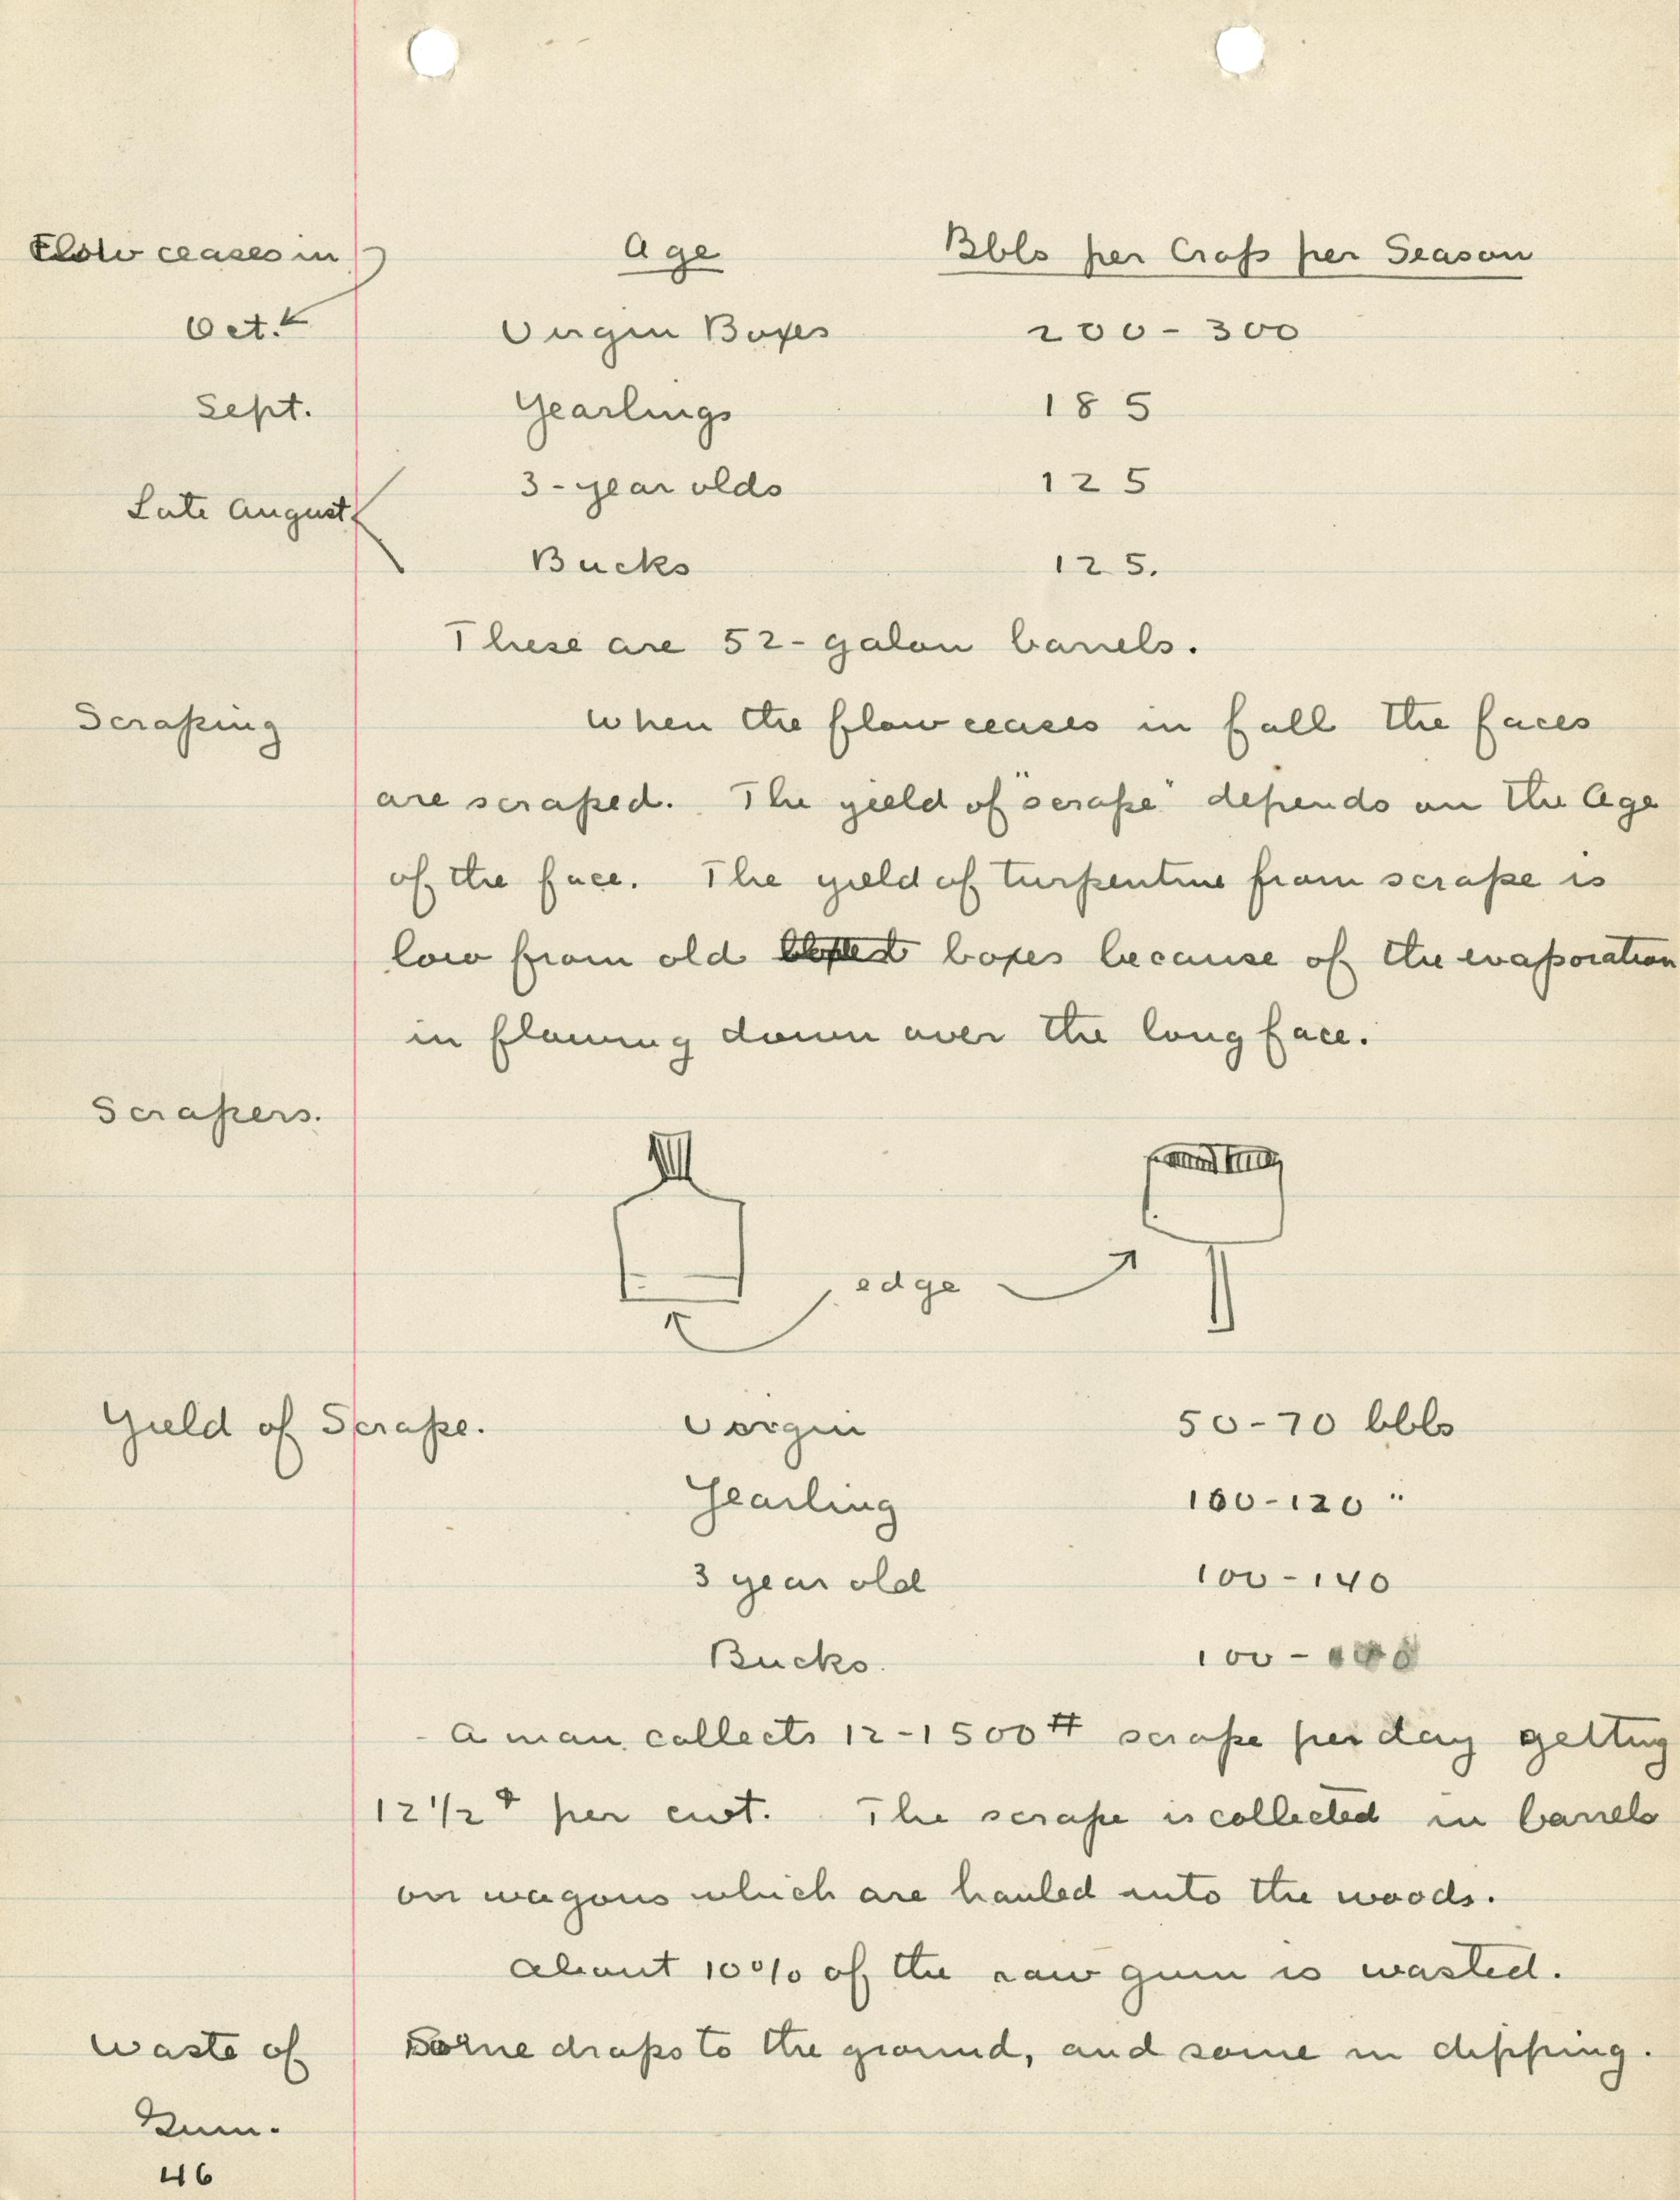 Flow ceases in Age Bbls per Crop per Season
Oct. Virgin Boxes 200-300
Sept. Yearlings 185
3-year olds 125
Late August
Bucks 125.
These are 52-galon barrels.
Scraping When the flow ceases in fall the faces
are scraped. The yield of "scrape" depends on the Age
of the face. The yield of turpentine from scrape is
low from old boxes because of the evaporation
in flowing down over the long face.
Scrapers.
edge
Yield of Scrape. Virgin 50-70 bbls
Yearling 100-120 "
3 year old 100-140
Bucks. 100-
A man collects 12-1500# scrape per day getting
12 1/2¢ per cwt. The scrape is collected in barrels
on wagons which are hauled into the woods.
About 10% of the raw gum is wasted.
Waste of Some drops to the ground, and some in dipping.
Gum.
46